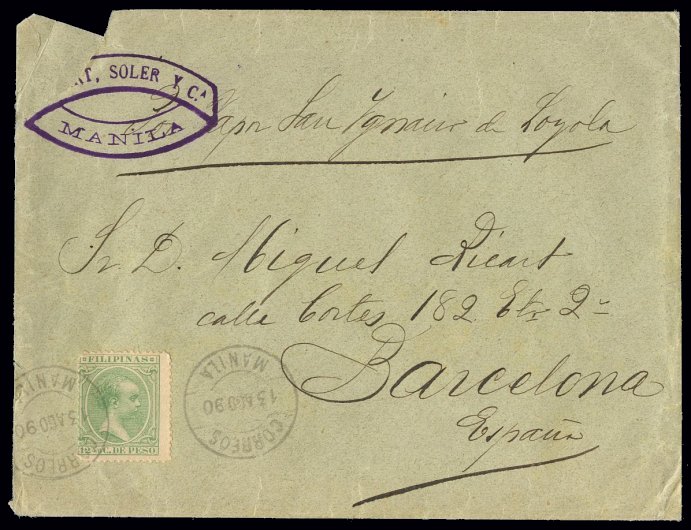 AT, SOLER Y Cª
MANILA
Vapor San Ignacio de Loyola
Sr. D. Miguel Ricart
calle Cortes 182 2º
Barcelona
España
FILIPINAS
C. DE PESO
CORREOS
13 AGO 90
MANILA
MANILA
3 AGO 90
RREOS